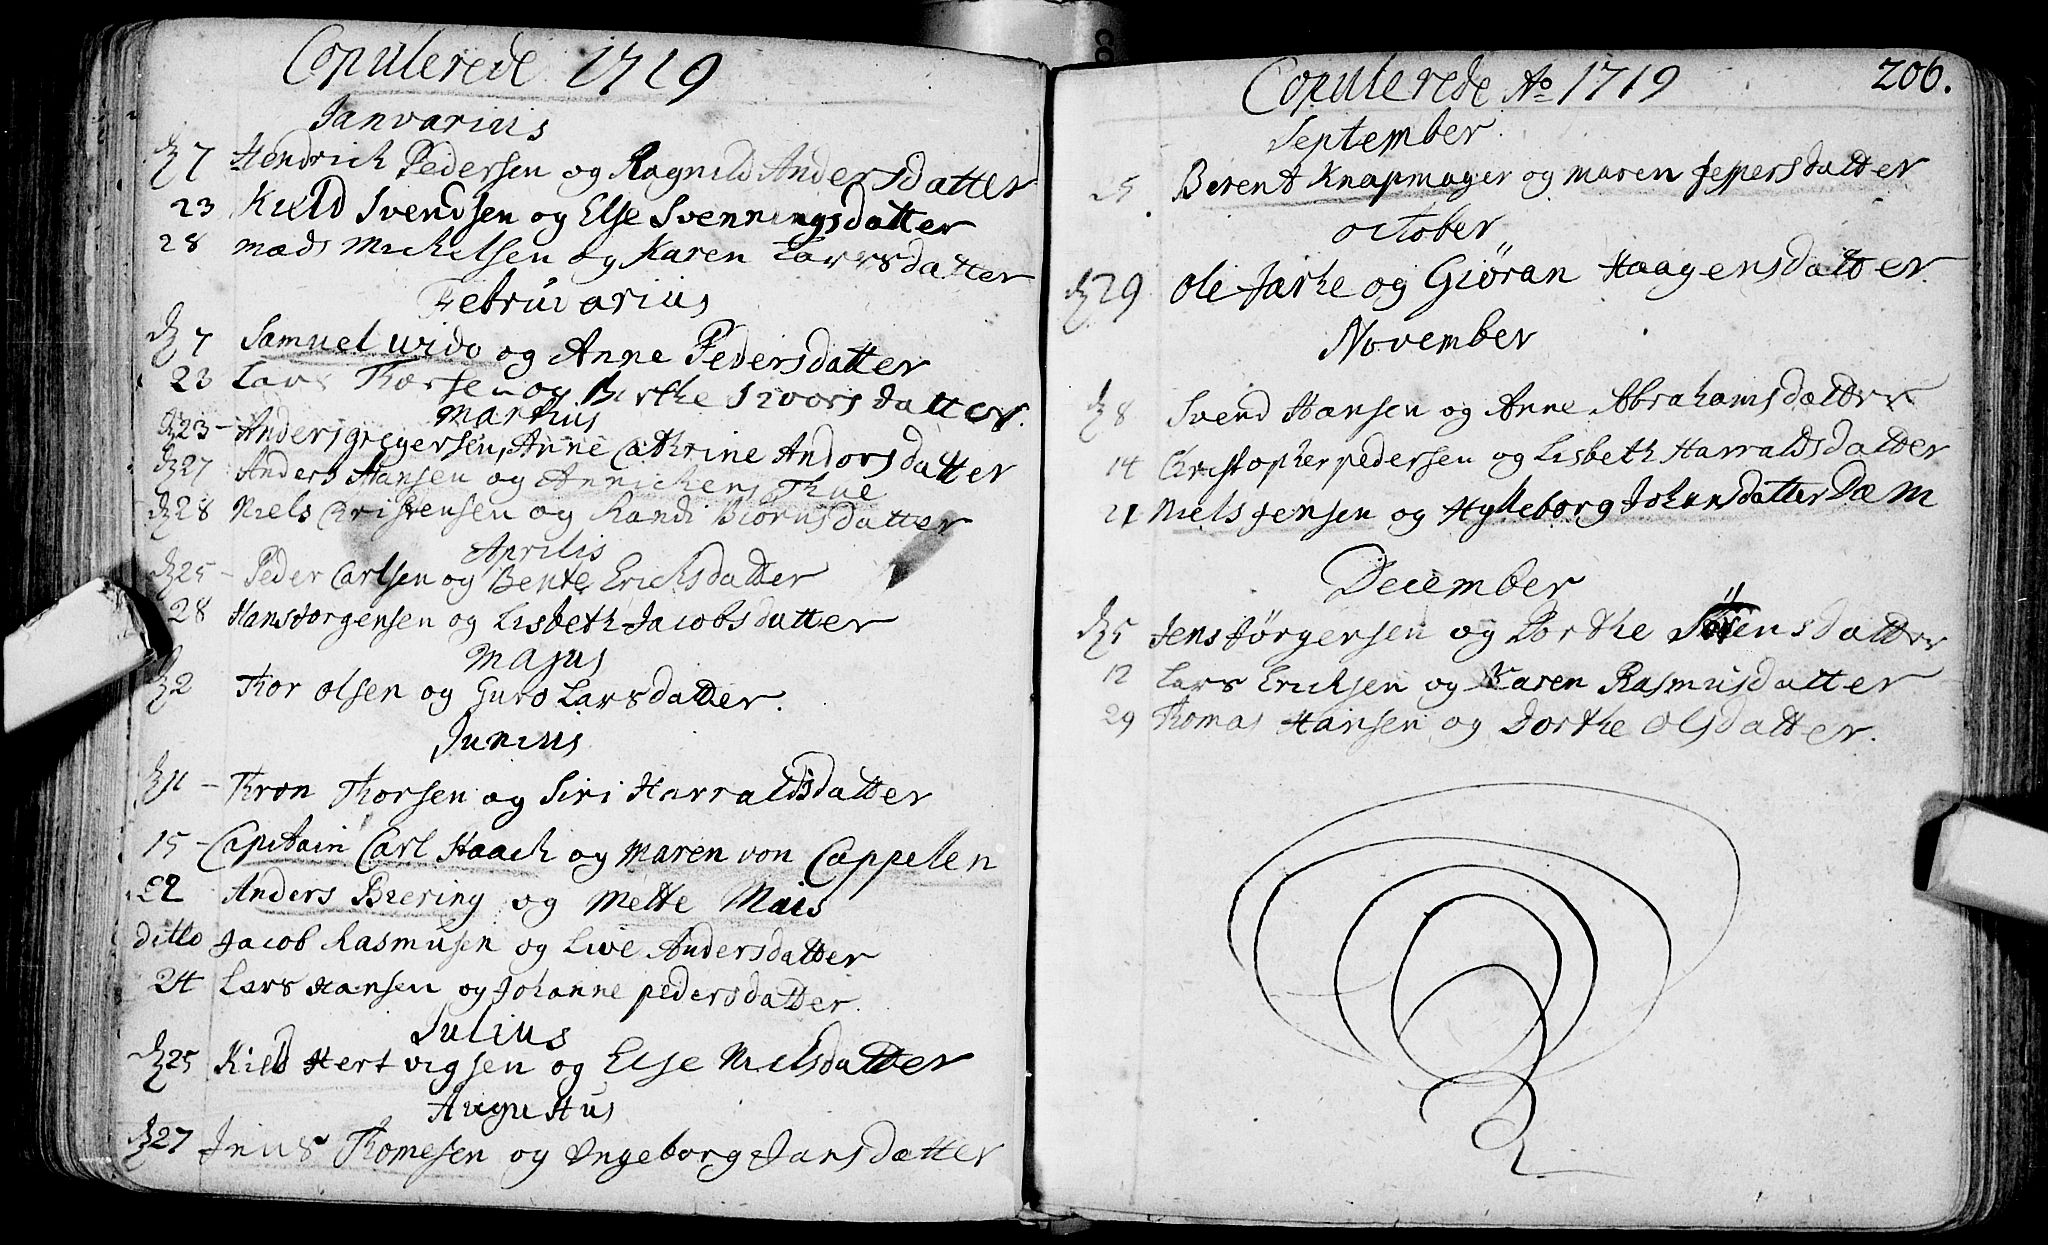 Copulerede 1719
Janvarius
dz 7 Hendrich Pedersen og Ragnild Andersdatter
23 Kield Svendsen og Else Svenningsdatter
28 Mads Michelsen og Karen Larsdatter
Februarius
dz 7 Samuel Wido og Anne Pedersdatter
23 Lars Thorsen og Birthe Sivorsdatter
Martius
dz 23 - Anders gregersen, Anne Cathrine Andorsdatter
dz 27 Anders Hansen og Annichen Thue
dz 28 Niels Christensen og Randi Biørnsdatter
Aprilis
dz 25 - Peder Carlsen og Bente Ericksdatter
28 Hans Jorgensen og Lisbeth Jacobsdatter
Majus
dz 2 Thor Olsen og Guro Larsdatter.
Junius
dz 11 - Thron Thorsen og Siri Harraldsdatter
15 - Capitain Carl Haack og Maren von Cappelen
22 Anders Biering og Mette Mais
ditto Jacob Rasmusen og Live Andersdatter
24 Lars Hansen og Johanne pedersdatter.
Julius
dz 25 Kield Hertvigsen og Else Nielsdatter
Augustus
dz 27 Jens Thomesen og Ingeborg Jansdatter
206.
Copulerede Ao 1719
September.
25. Berent Knapmager og maren Jeppersdatter
october
dz 29 Ole Jarke og Giøran Haagensdatter.
November
dz 8 Svend Hansen og Anne Abrahamsdatter
14 Christopher pedersen og Lisbeth Harraldsdatter
21 Niels Jensen og Hylleborg Johansdatter Dæm
December
dz 5 Jens Jörgensen og Dorthe Sörensdatter
12 Lars Ericksen og Karen Rasmusdatter
29 Thomas Hansen og Dorthe Olsdatter.